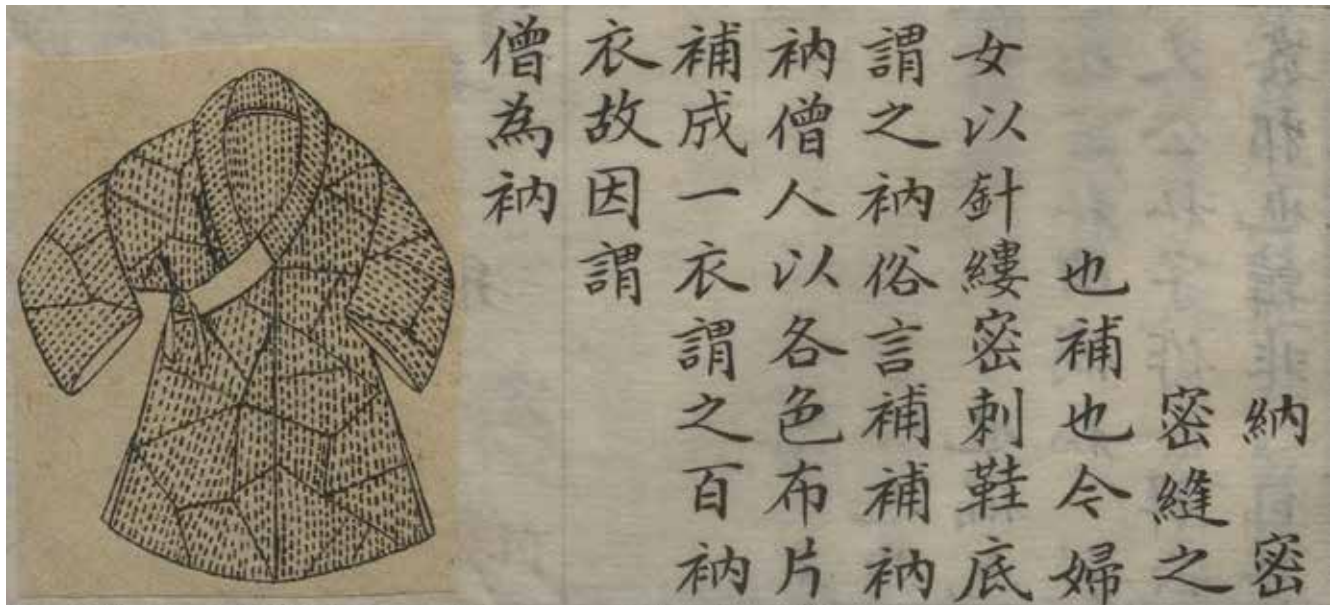 納 密
密縫之
也補也今婦
女以針縷密刺鞋底
謂之衲俗言補補衲
衲僧人以各色布片
補成一衣謂之百衲
衣故因謂
僧為衲